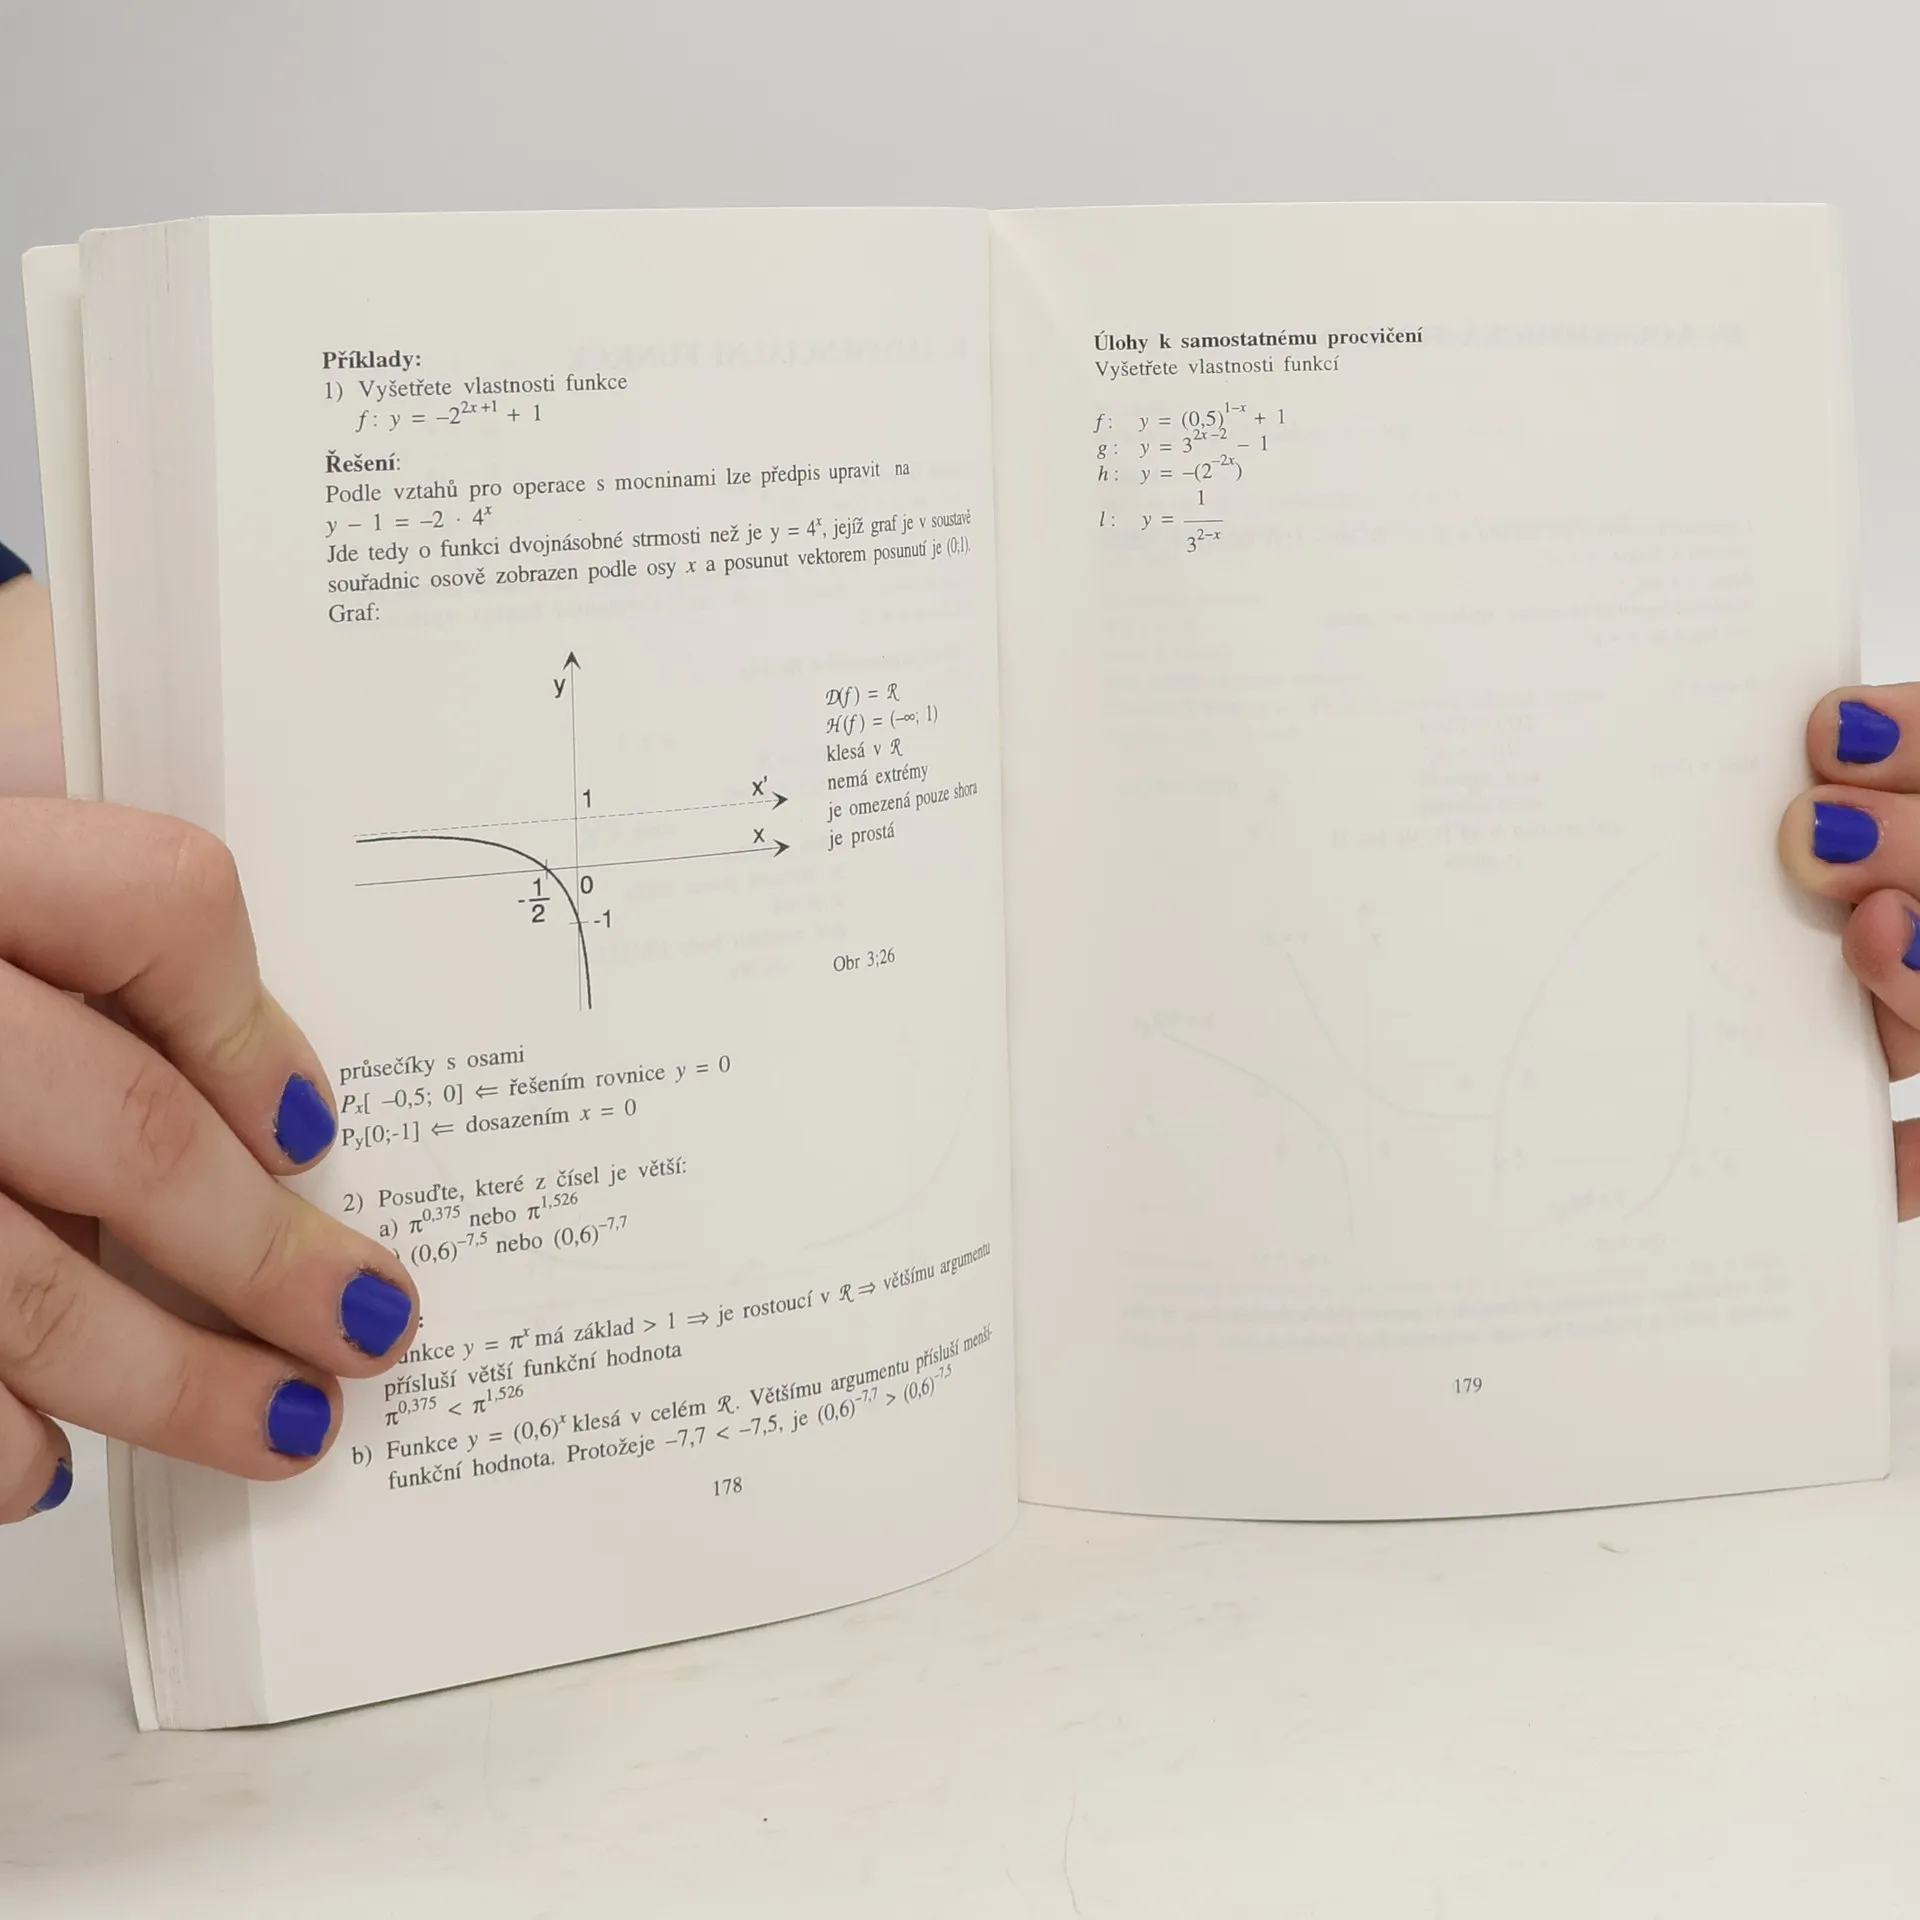 Příklady:
1) Vyšetřete vlastnosti funkce
f: y = –2^{2x+1} + 1
Řešení:
Podle vztahů pro operace s mocninami lze předpis upravit na
y – 1 = –2 · 4^x
Jde tedy o funkci dvojnásobné strmosti než je y = 4^x, jejíž graf je v soustavě
souřadnic osově zobrazen podle osy x a posunut vektorem posunutí je (0;1).
Graf:
y
1
x'
x
-1/2
0
-1
D(f) = R
H(f) = (–∞; 1)
klesá v R
nemá extrémy
je omezená pouze shora
je prostá
Obr 3;26
průsečíky s osami
P_x[ –0,5; 0] ⇐ řešením rovnice y = 0
P_y[0;-1] ⇐ dosazením x = 0
2) Posuďte, které z čísel je větší:
a) π^{0,375} nebo π^{1,526}
) (0,6)^{–7,5} nebo (0,6)^{–7,7}
:
unkce y = π^x má základ > 1 ⇒ je rostoucí v R ⇒ většímu argumentu
přísluší větší funkční hodnota
π^{0,375} < π^{1,526}
b) Funkce y = (0,6)^x klesá v celém R. Většímu argumentu přísluší menší-
funkční hodnota. Protožeje –7,7 < –7,5, je (0,6)^{–7,7} > (0,6)^{–7,5}
178
Úlohy k samostatnému procvičení
Vyšetřete vlastnosti funkcí
f: y = (0,5)^{1–x} + 1
g: y = 3^{2x–2} – 1
h: y = –(2^{–2x})
l: y = 1/3^{2–x}
179